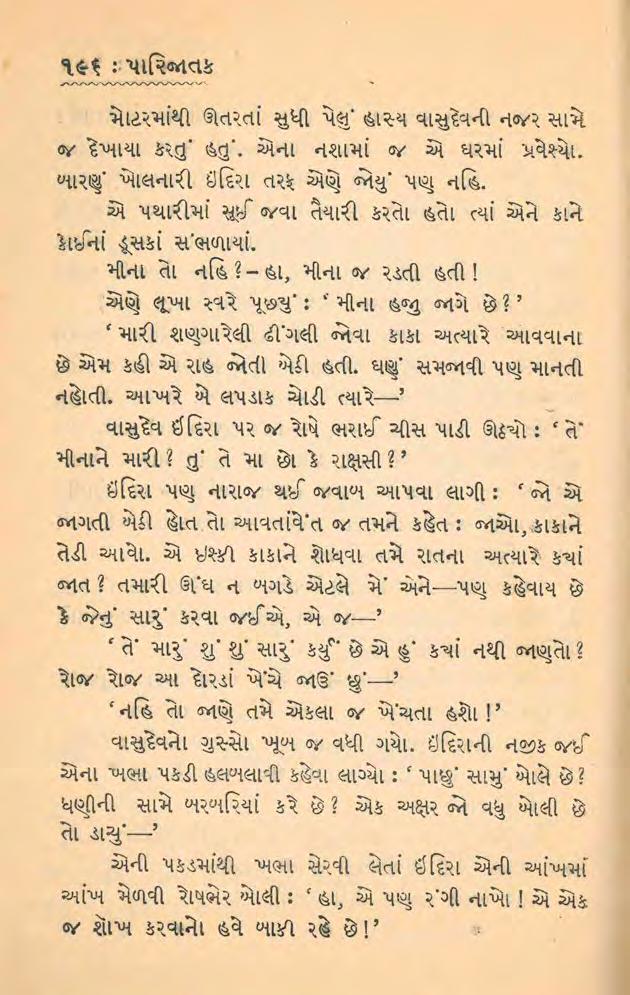 ૧૯૬ : પારિજાતક
મોટરમાંથી ઊતરતાં સુધી પેલું હાસ્ય વાસુદેવની નજર સામે
જ દેખાયા કરતું હતું. એના નશામાં જ એ ઘરમાં પ્રવેશ્યો.
બારણું ખોલનારી ઇંદિરા તરફ એણે જોયું પણ નહિ.
એ પથારીમાં સૂઈ જવા તૈયારી કરતો હતો ત્યાં એને કાને
કોઈનાં ડૂસકાં સંભળાયાં.
મીના તો નહિ ?– હા, મીના જ રડતી હતી !
એણે લૂખા સ્વરે પૂછ્યું : ‘ મીના હજુ જાગે છે ? ’
‘ મારી શણગારેલી ઢીંગલી જોવા કાકા અત્યારે આવવાના
છે એમ કહી એ રાહ જોતી બેઠી હતી. ઘણું સમજાવી પણ માનતી
નહોતી. આખરે બે લપડાક ચોડી ત્યારે—’
વાસુદેવ ઇંદિરા પર જ રોષે ભરાઈ ચીસ પાડી ઊઠ્યો : ‘ તેં
મીનાને મારી ? તું તે મા છો કે રાક્ષસી ? ’
ઇંદિરા પણ નારાજ થઈ જવાબ આપવા લાગી : ‘ જો એ
જાગતી બેઠી હોત તો આવતાંવેંત જ તમને કહેત : જાઓ, કાકાને
તેડી આવો. એ ઇશ્કી કાકાને શોધવા તમે રાતના અત્યારે ક્યાં
જાત ? તમારી ઊંઘ ન બગડે એટલે મેં એને—પણ કહેવાય છે
કે જેનું સારું કરવા જઈએ, એ જ—’
‘ તેં મારું શું શું સારું કર્યું છે એ હું ક્યાં નથી જાણતો ?
રોજ રોજ આ દોરડાં ખેંચે જાઉં છું—’
‘નહિ તો જાણે તમે એકલા જ ખેંચતા હશો !’
વાસુદેવનો ગુસ્સો ખૂબ જ વધી ગયો. ઇંદિરાની નજીક જઈ
એના ખભા પકડી હલબલાવી કહેવા લાગ્યો : ‘ પાછું સામું બોલે છે ?
ધણીની સામે બરબરિયાં કરે છે ? એક અક્ષર જો વધુ બોલી છે
તો ડાચું—’
એની પકડમાંથી ખભા સેરવી લેતાં ઇંદિરા એની આંખમાં
આંખ મેળવી રોષભેર બોલી : ‘ હા, એ પણ રંગી નાખો ! એ એક
જ શોખ કરવાનો હવે બાકી રહે છે !’